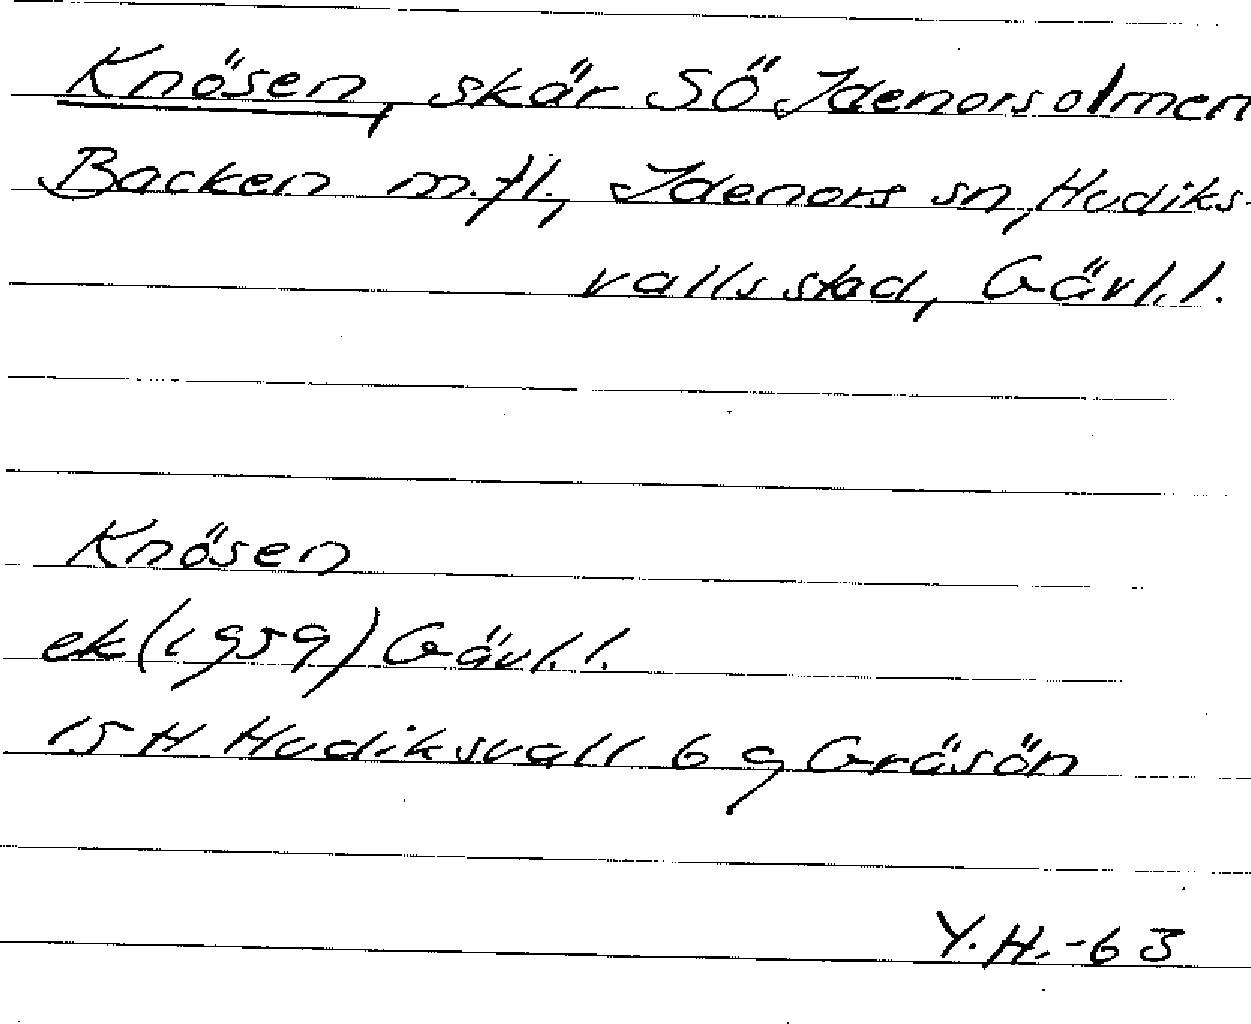 Knösen, skär SÖ Idenorsolmen
Backen m.fl., Idenors sn, Hudiks-
valls stad, Gävl.l.
Knösen
ek (1959) Gävl.l.
15 H Hudiksvall 6 g Gräsön
Y.H.-63